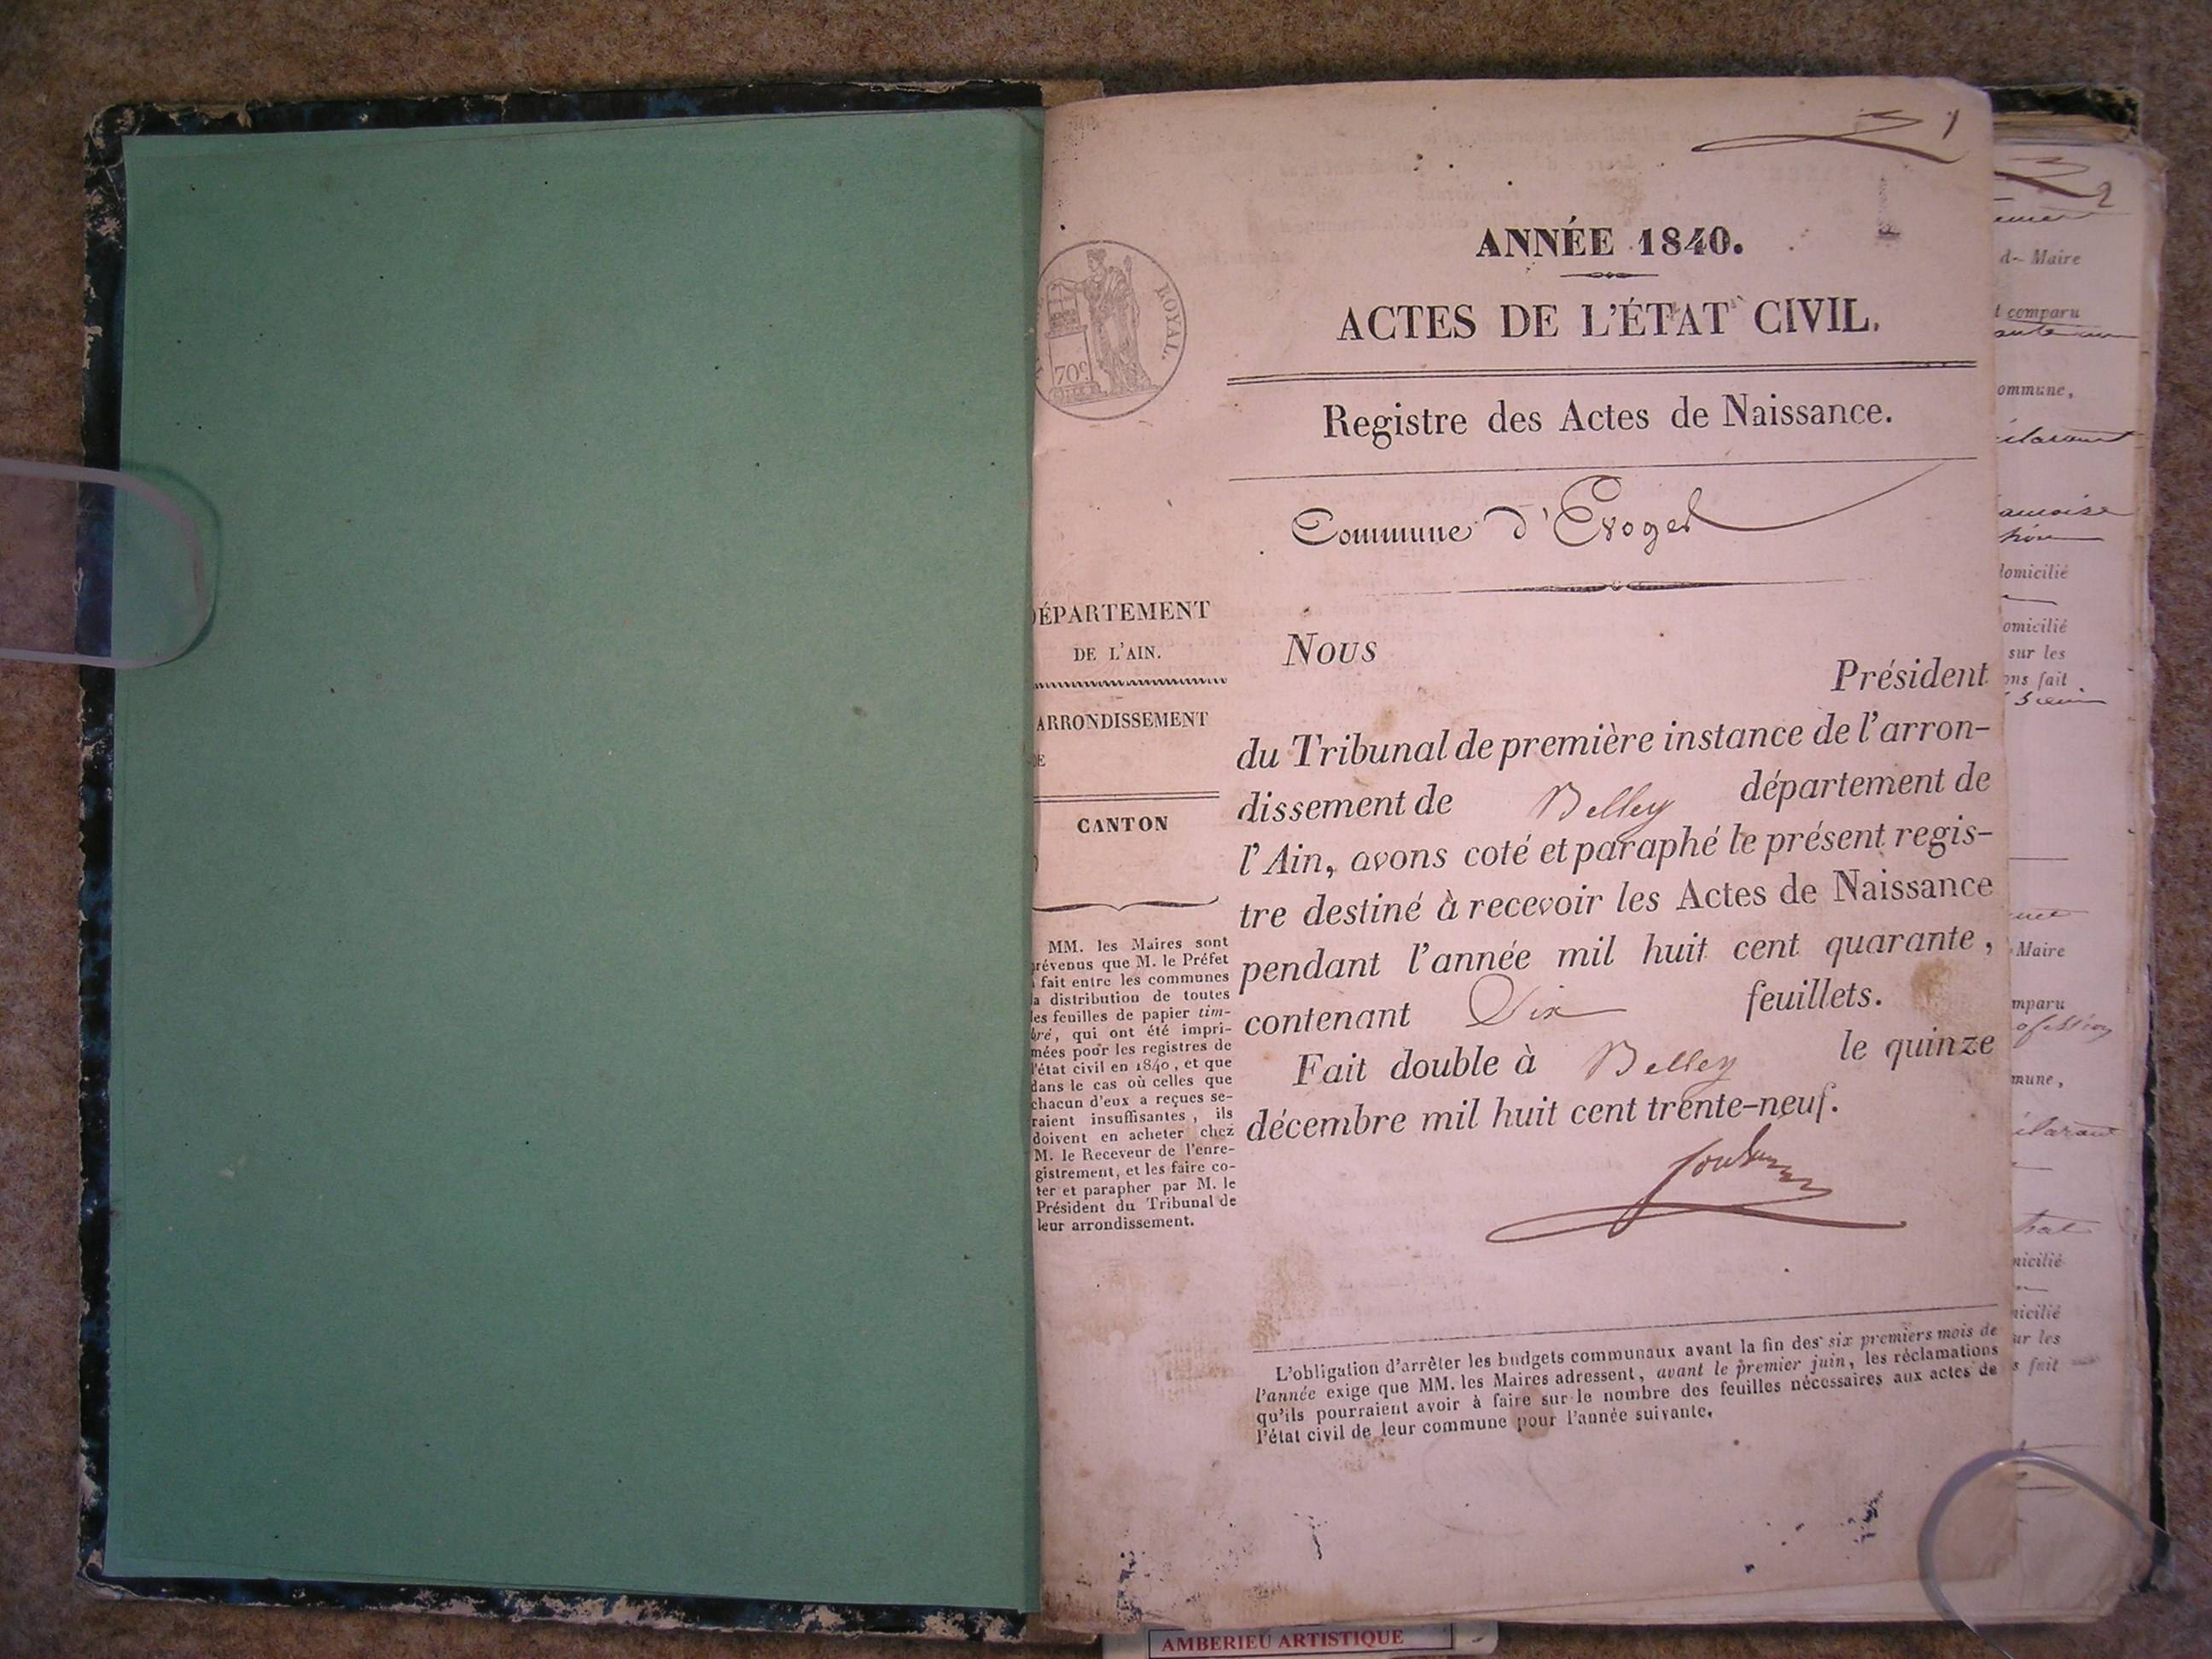 1
ANNÉE 1840.
ACTES DE L'ÉTAT CIVIL.
ROYAL.
70c
Registre des Actes de Naissance.
Commune d'Evoges
DÉPARTEMENT
DE L'AIN.
ARRONDISSEMENT
DE
CANTON
MM. les Maires sont
prévenus que M. le Préfet
a fait entre les communes
la distribution de toutes
les feuilles de papier tim-
bré, qui ont été impri-
mées pour les registres de
l'état civil en 1840, et que
dans le cas où celles que
chacun d'eux a reçues se-
raient insuffisantes, ils
doivent en acheter chez
M. le Receveur de l'enre-
gistrement, et les faire co-
ter et parapher par M. le
Président du Tribunal de
leur arrondissement.
Nous
Président
du Tribunal de première instance de l'arron-
dissement de Belley département de
l'Ain, avons coté et paraphé le présent regis-
tre destiné à recevoir les Actes de Naissance
pendant l'année mil huit cent quarante,
contenant Dix feuillets.
Fait double à Belley le quinze
décembre mil huit cent trente-neuf.
L'obligation d'arrêter les budgets communaux avant la fin des six premiers mois de
l'année exige que MM. les Maires adressent, avant le premier juin, les réclamations
qu'ils pourraient avoir à faire sur le nombre des feuilles nécessaires aux actes de
l'état civil de leur commune pour l'année suivante.
2
Maire
comparu
ommune,
domicilié
omicilié
sur les
ons fait
Maire
mparu
mune,
micilié
micilié
ur les
s fait
AMBERIEU ARTISTIQUE